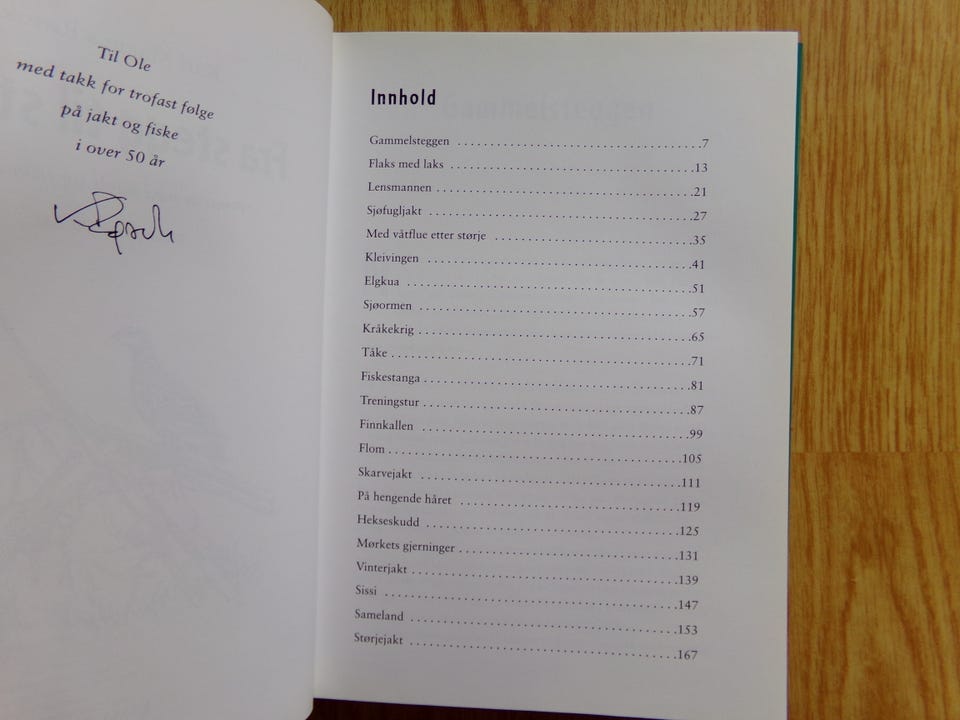 Til Ole
med takk for trofast følge
på jakt og fiske
i over 50 år
Innhold
Gammelsteggen ..................................7
Flaks med laks ..................................13
Lensmannen ..................................21
Sjøfugljakt ..................................27
Med våtflue etter størje ..................................35
Kleivingen ..................................41
Elgkua ..................................51
Sjøormen ..................................57
Kråkekrig ..................................65
Tåke ..................................71
Fiskestanga ..................................81
Treningstur ..................................87
Finnkallen ..................................99
Flom ..................................105
Skarvejakt ..................................111
På hengende håret ..................................119
Hekseskudd ..................................125
Mørkets gjerninger ..................................131
Vinterjakt ..................................139
Sissi ..................................147
Sameland ..................................153
Størjejakt ..................................167